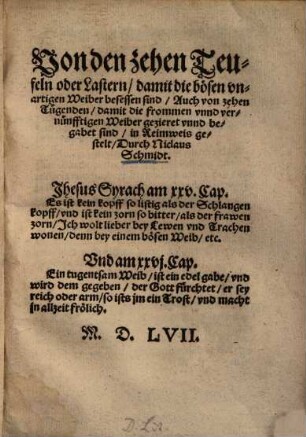 Von den zehen Teu-
feln oder Lastern / damit die bösen vn-
artigen Weiber besessen sind / Auch von zehen
Tügenden / damit die frommen vnnd ver-
nünfftigen Weiber gezieret vnnd be-
gabet sind / in Reimweis ge-
stelt / Durch Niclaus
Schmidt.
Jhesus Syrach am xxv. Cap.
Es ist kein kopff so listig als der Schlangen
kopff / vnd ist kein zorn so bitter / als der frawen
zorn / Ich wolt lieber bey Lewen vnd Trachen
wonen / denn bey einem bösen Weib / etc.
Vnd am xxvj. Cap.
Ein tugentsam Weib / ist ein edel gabe / vnd
wird dem gegeben / der Gott fürchtet / er sey
reich oder arm / so ists jm ein Trost / vnd macht
jn allzeit frölich.
M. D. LVII.